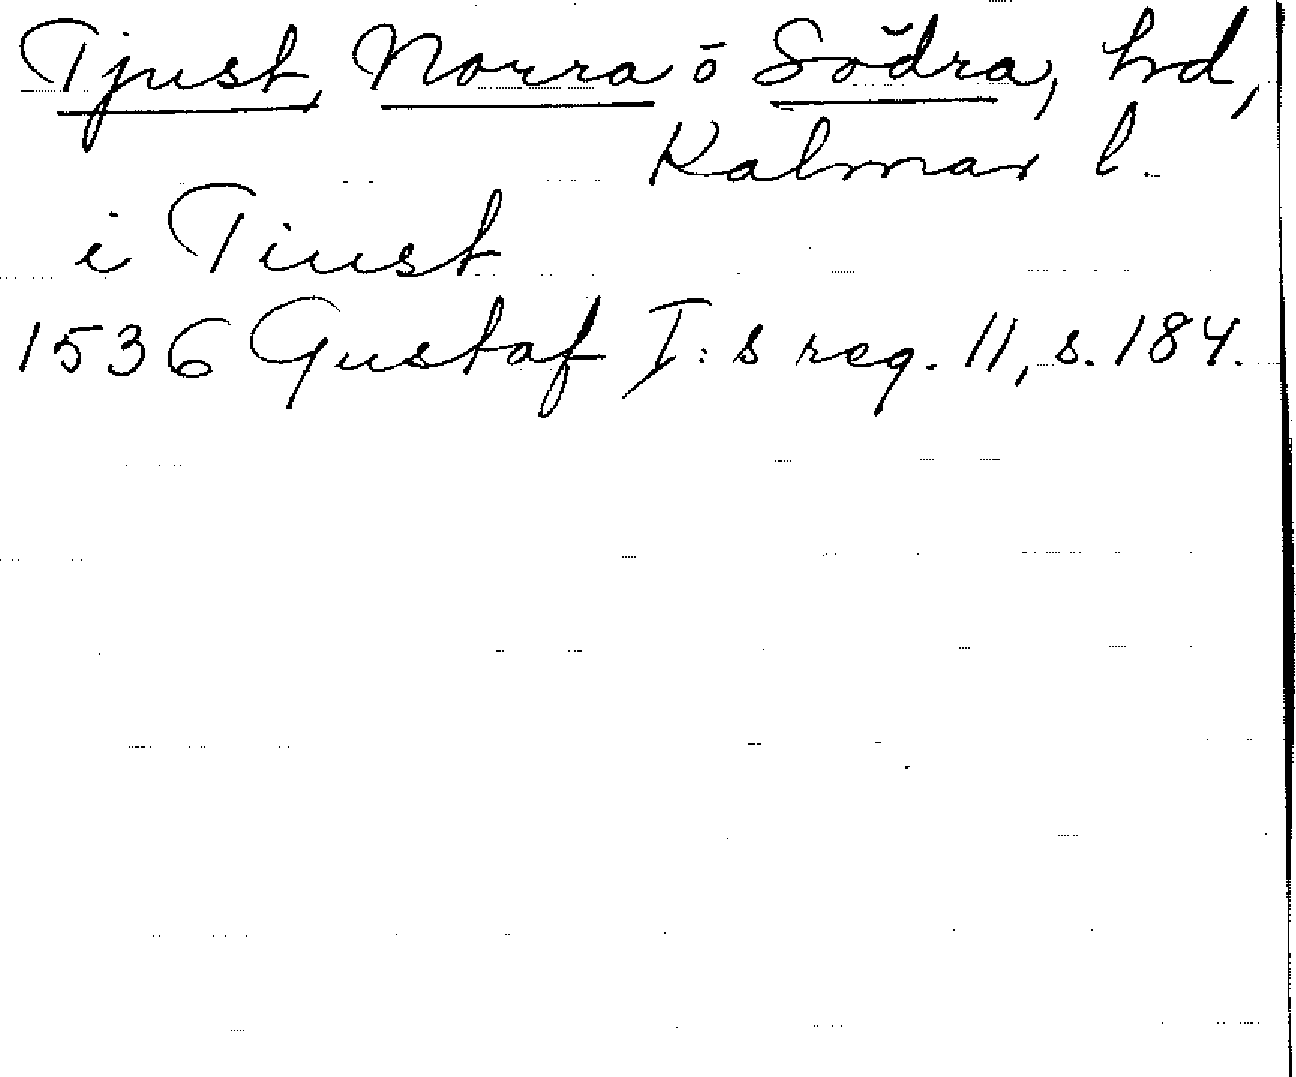 Tjust, Norra ō Södra, hd,
Kalmar l.
i Tiust
1536 Gustaf I:s reg. 11, s. 184.